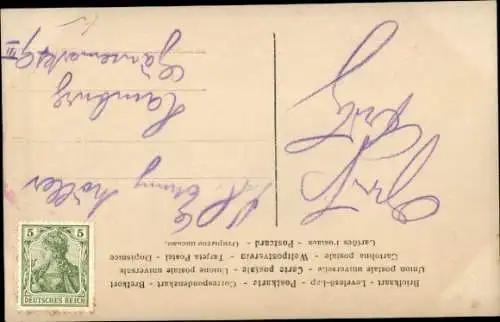 Briefkaart - Levelező-Lap - Postkarte - Correspondenzkarte - Brefkort
Union postale universelle - Carte postale - Unione postale universale
Cartolina postale - Weltpostverein - Tarjeta Postal - Dopisnice
Cartões Postaes - Postcard - Открытое письмо.
Gruß
Fritz
Möller
Hamburg
Gänsemarkt
III
5 5
DEUTSCHES REICH